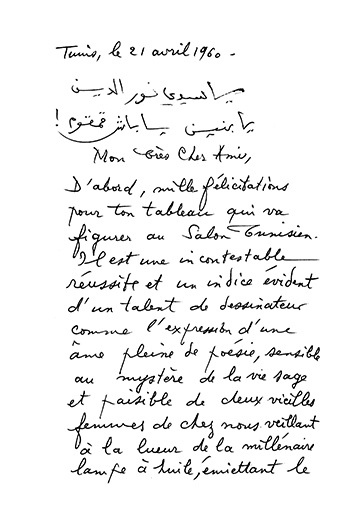 Tunis, le 21 avril 1960 -
يا سيدي نور الدين
يا بنين يا باش قمقوم!
Mon très Cher Ami,
D'abord, mille félicitations
pour ton tableau qui va
figurer au Salon Tunisien.
Il est une incontestable
réussite et un indice évident
d'un talent de dessinateur
comme l'expression d'une
âme pleine de poésie, sensible
au mystère de la vie sage
et paisible de deux vieilles
femmes de chez nous veillant
à la lueur de la millénaire
lampe à huile, émiettant le